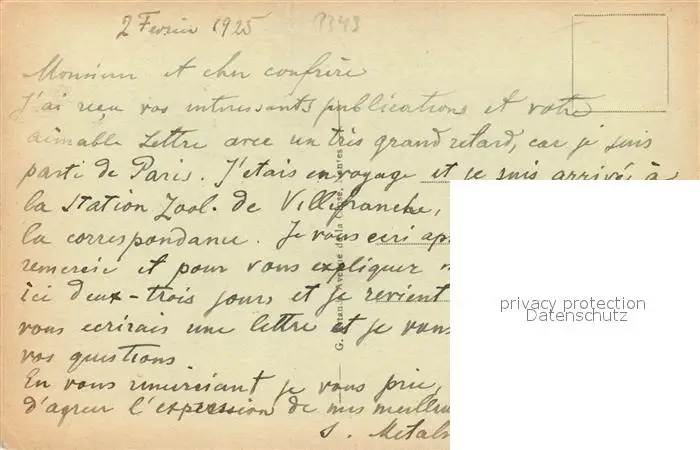 2 Fevrier 1925
Monsieur et cher confrère
J'ai reçu vos interessants publications et votre
aimable Lettre avec un très grand retard, car je suis
parti de Paris. J'etais en voyage et je suis arrivé à
la Station Zool. de Villefranche,
la correspondance. Je vous ecri
remercie et pour vous expliquer
ici deux-trois jours et je revient
vous ecrirais une lettre et je vous
vos questions
En vous remerciant je vous prie,
d'agreer l'expression de mes
S.
privacy protection
Datenschutz